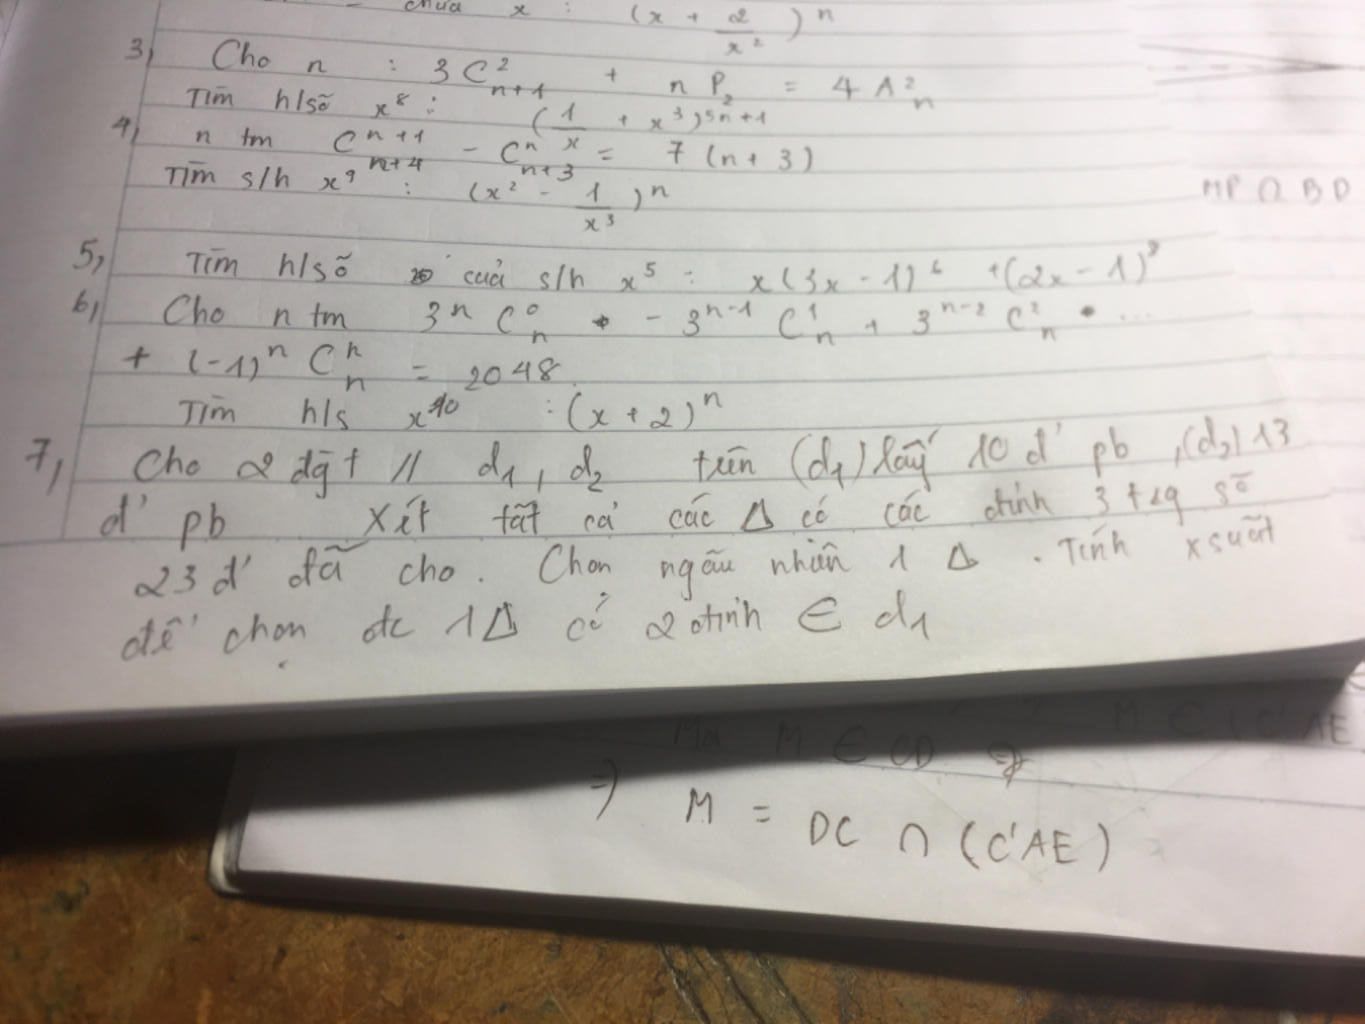 chứa x : (x + 2/x²)ⁿ
3, Cho n : 3C²ₙ₊₁ + nP₂ = 4A²ₙ
Tìm h/số x⁸ : (1/x + x³)⁵ⁿ⁺¹
4, n tm Cⁿ⁺¹ₙ₊₄ - Cⁿₙ₊₃ = 7(n+3)
Tìm s/h x⁹ : (x² - 1/x³)ⁿ
MP ∩ BD
5, Tìm h/số của s/h x⁵ : x(3x-1)⁶ + (2x-1)⁸
6, Cho n tm 3ⁿ C⁰ₙ - 3ⁿ⁻¹ C¹ₙ + 3ⁿ⁻² C²ₙ ...
+ (-1)ⁿ Cⁿₙ = 2048
Tìm h/s x¹⁰ : (x+2)ⁿ
7, Cho 2 đgt // d₁, d₂ trên (d₁) lấy 10 đ' pb, (d₂) 13
đ' pb Xét tất cả các Δ có các đỉnh 3 trg số
23 đ' đã cho. Chọn ngẫu nhiên 1 Δ. Tính xsuất
để chọn đc 1Δ có 2 đỉnh ∈ d₁
Mà M ∈ CD ⇒ M ∈ (C'AE
⇒ M = DC ∩ (C'AE)